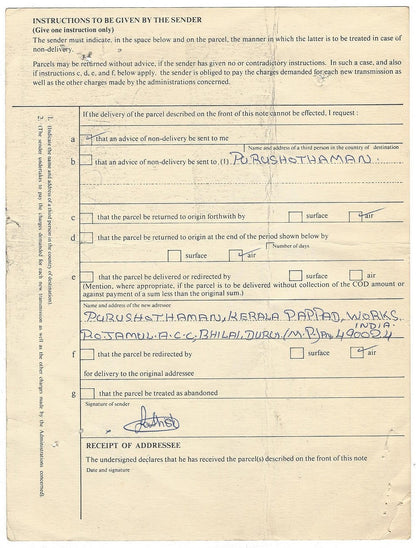 INSTRUCTIONS TO BE GIVEN BY THE SENDER
(Give one instruction only)
The sender must indicate, in the space below and on the parcel, the manner in which the latter is to be treated in case of
non-delivery.
Parcels may be returned without advice, if the sender has given no or contradictory instructions. In such a case, and also
if instructions c, d, e, and f, below apply, the sender is obliged to pay the charges demanded for each new transmission as
well as the other charges made by the administrations concerned.
If the delivery of the parcel described on the front of this note cannot be effected, I request :
a that an advice of non-delivery be sent to me
Name and address of a third person in the country of destination
b that an advice of non-delivery be sent to, (1) PURUSHOTHAMAN
c that the parcel be returned to origin forthwith by surface air
d that the parcel be returned to origin at the end of the period shown below by
Number of days
surface air
e that the parcel be delivered or redirected by surface air
(Mention, where appropriate, if the parcel is to be delivered without collection of the COD amount or
against payment of a sum less than the original sum.)
Name and address of the new adressee
PURUSHOTHAMAN, KERALA PAPPAD, WORKS,
INDIA.
A.C.C, BHILAI, 490024
f that the parcel be redirected by surface air
for delivery to the original addressee
g that the parcel be treated as abandoned
Signature of sender
RECEIPT OF ADDRESSEE
The undersigned declares that he has received the parcel(s) described on the front of this note
Date and signature
1. (Indicate the name and address of a third person in the country of destination).
2. (The sender undertakes to pay the charges demanded for each new transmission as well as the other charges made by the Administrations concerned).